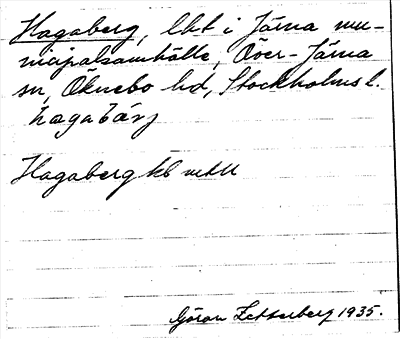 Hagaberg, lht i Järna mu-
nicipalsamhälle, Över-Järna
sn, Öknebo hd, Stockholms l.
hagabärj
Hagaberg kb
Göran Zetterberg 1935.